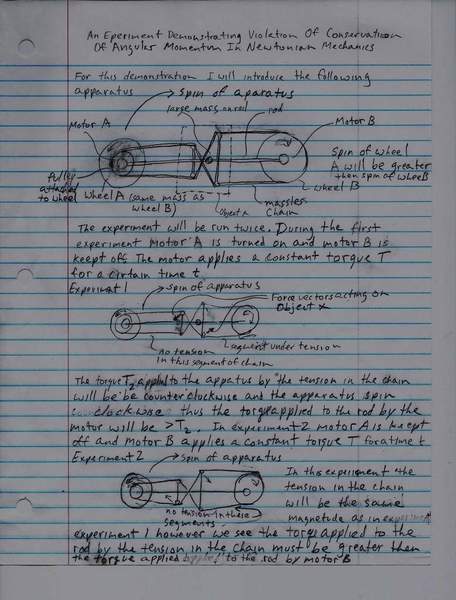 An Eperiment Demonstrating Violation Of Conservation
Of Angular Momentum In Newtonian Mechanics
For this demonstration I will introduce the following
apparatus
spin of aparatus
large mass on rod
rod
Motor A
Motor B
Spin of wheel
A will be greater
then spin of wheel B
attached
to wheel
Wheel A (same mass as
wheel B)
Object
wheel B
massles
Chain
The experiment will be run twice. During the first
experiment Motor A is turned on and motor B is
keept off The motor applies a constant torque T
for a cirtain time t
Experiment 1
spin of apparatus
Force vectors acting on
Object x
no tension
in this segment of chain
segment under tension
The torque T2 applied to the appatus by the tension in the chain
will be be counter clockwise and the apparatus spin
clockwise thus the torqe applied to the rod by the
motor will be > T2. In experiment 2 motor A is keept
off and Motor B applies a constant torque T for a time t
Experiment 2
spin of apparatus
In this experiment the
tension in the chain
will be the same
no tension in these
segments
magnetude as in
experiment 1 however we see the torqe applied to the
rod by the tension in the chain must be greater then
the torque applied to the rod by motor B